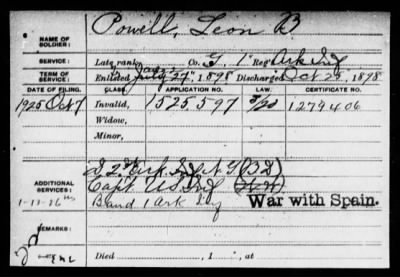 NAME OF SOLDIER: Powell, Leon B
SERVICE: Late rank, Co. G, 1" Reg't Ark Inf
TERM OF SERVICE: Enlisted July 27", 1898 Discharged Oct 25, 1898
DATE OF FILING. CLASS. APPLICATION NO. LAW. CERTIFICATE NO.
1925 Oct 7 Invalid, 1525,597 1279406
Widow,
Minor,
ADDITIONAL SERVICES: Ark Inf N G
Capt. U S Inf
1-11-16 Band 1 Ark Inf War with Spain.
REMARKS:
Died , 1 , at